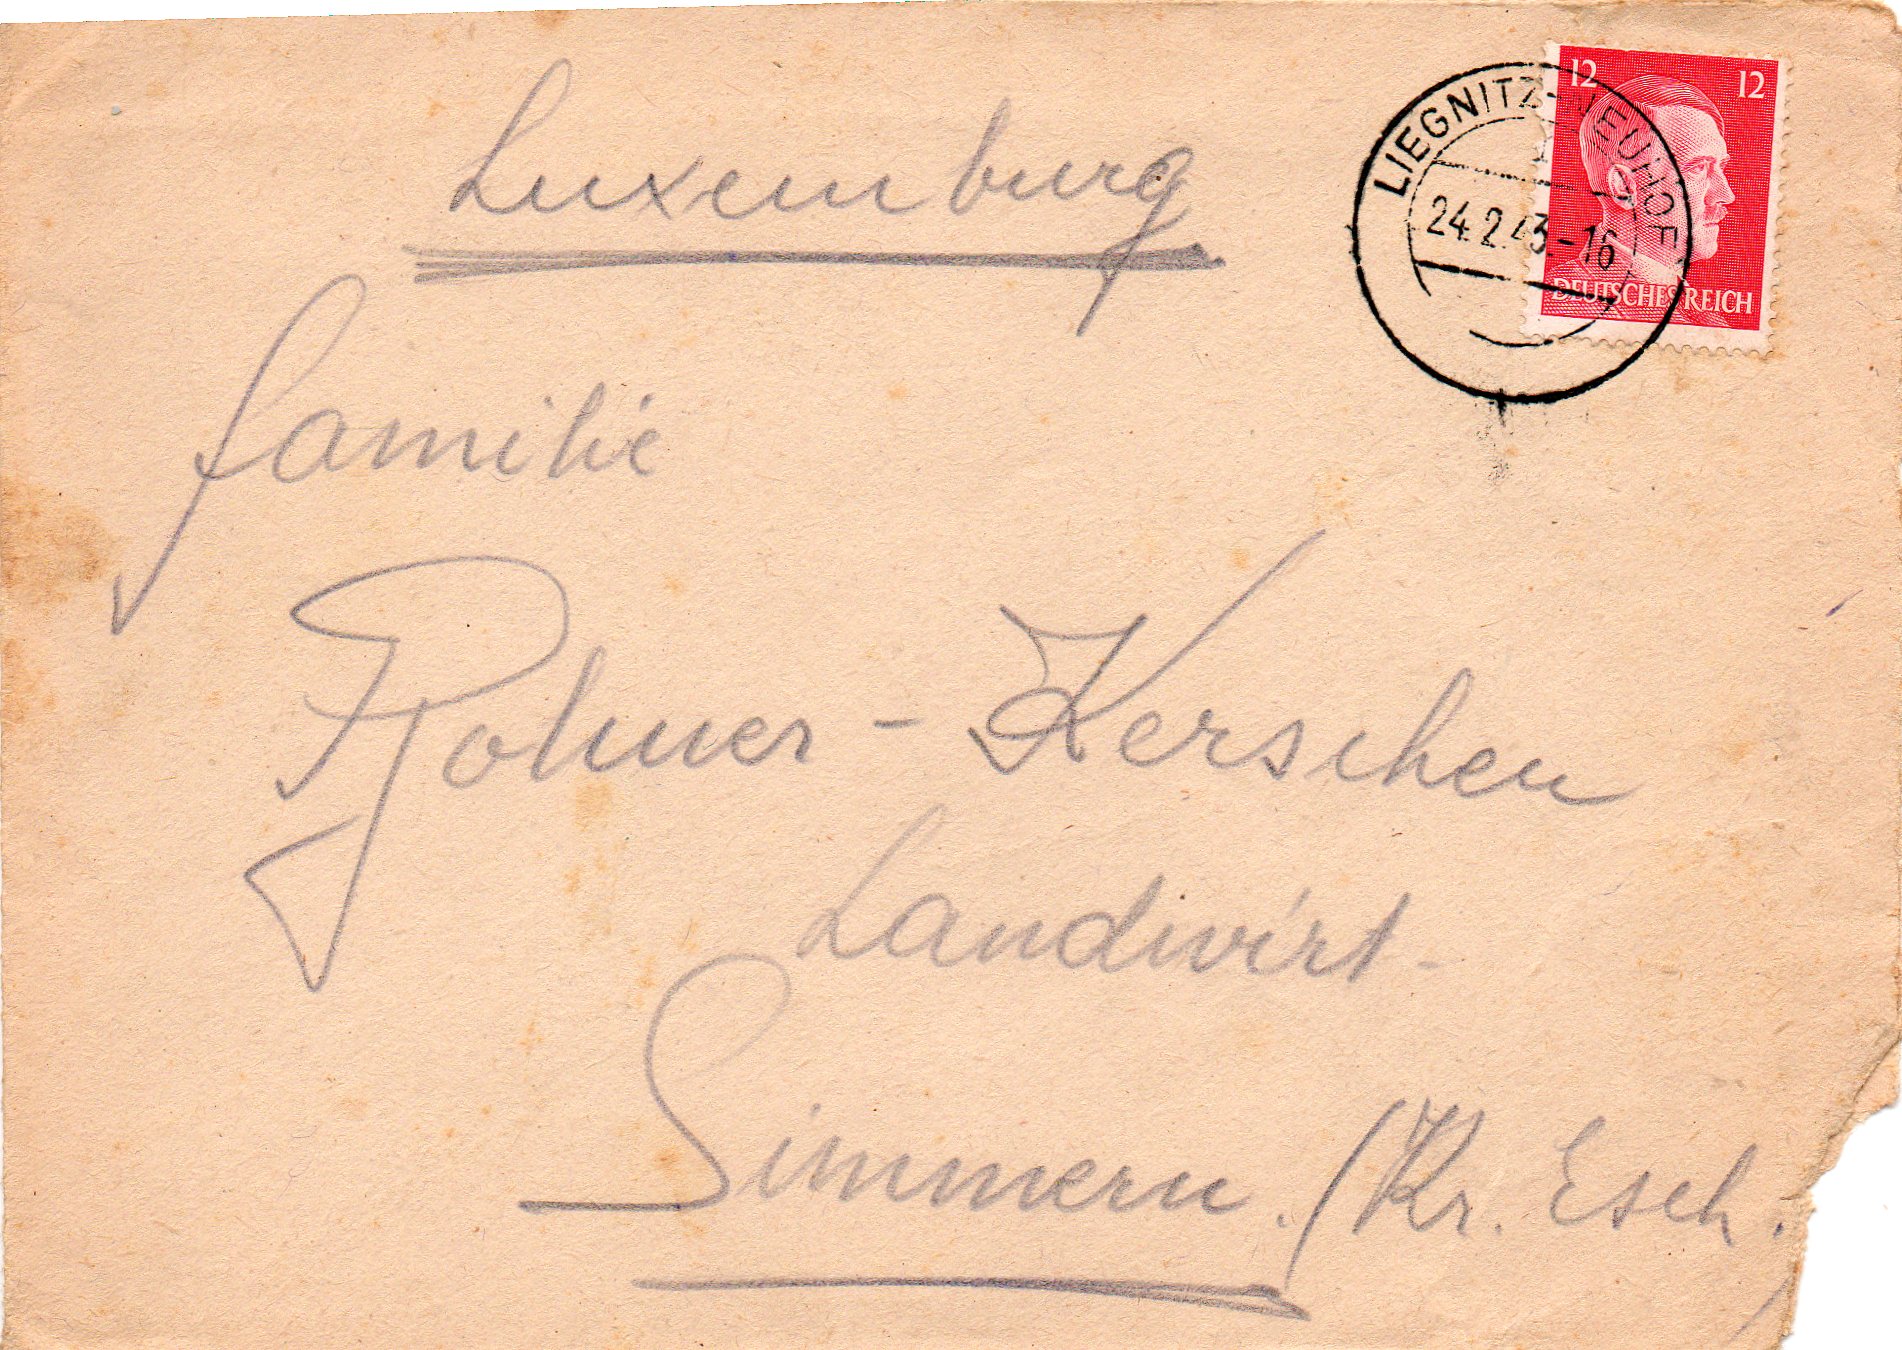 12 12
DEUTSCHES REICH
LIEGNITZ-NEUHOF
24.2.43.-16
Luxemburg
familie
- Kerschen
Landwirt-
Simmern. (Kr. Esch.